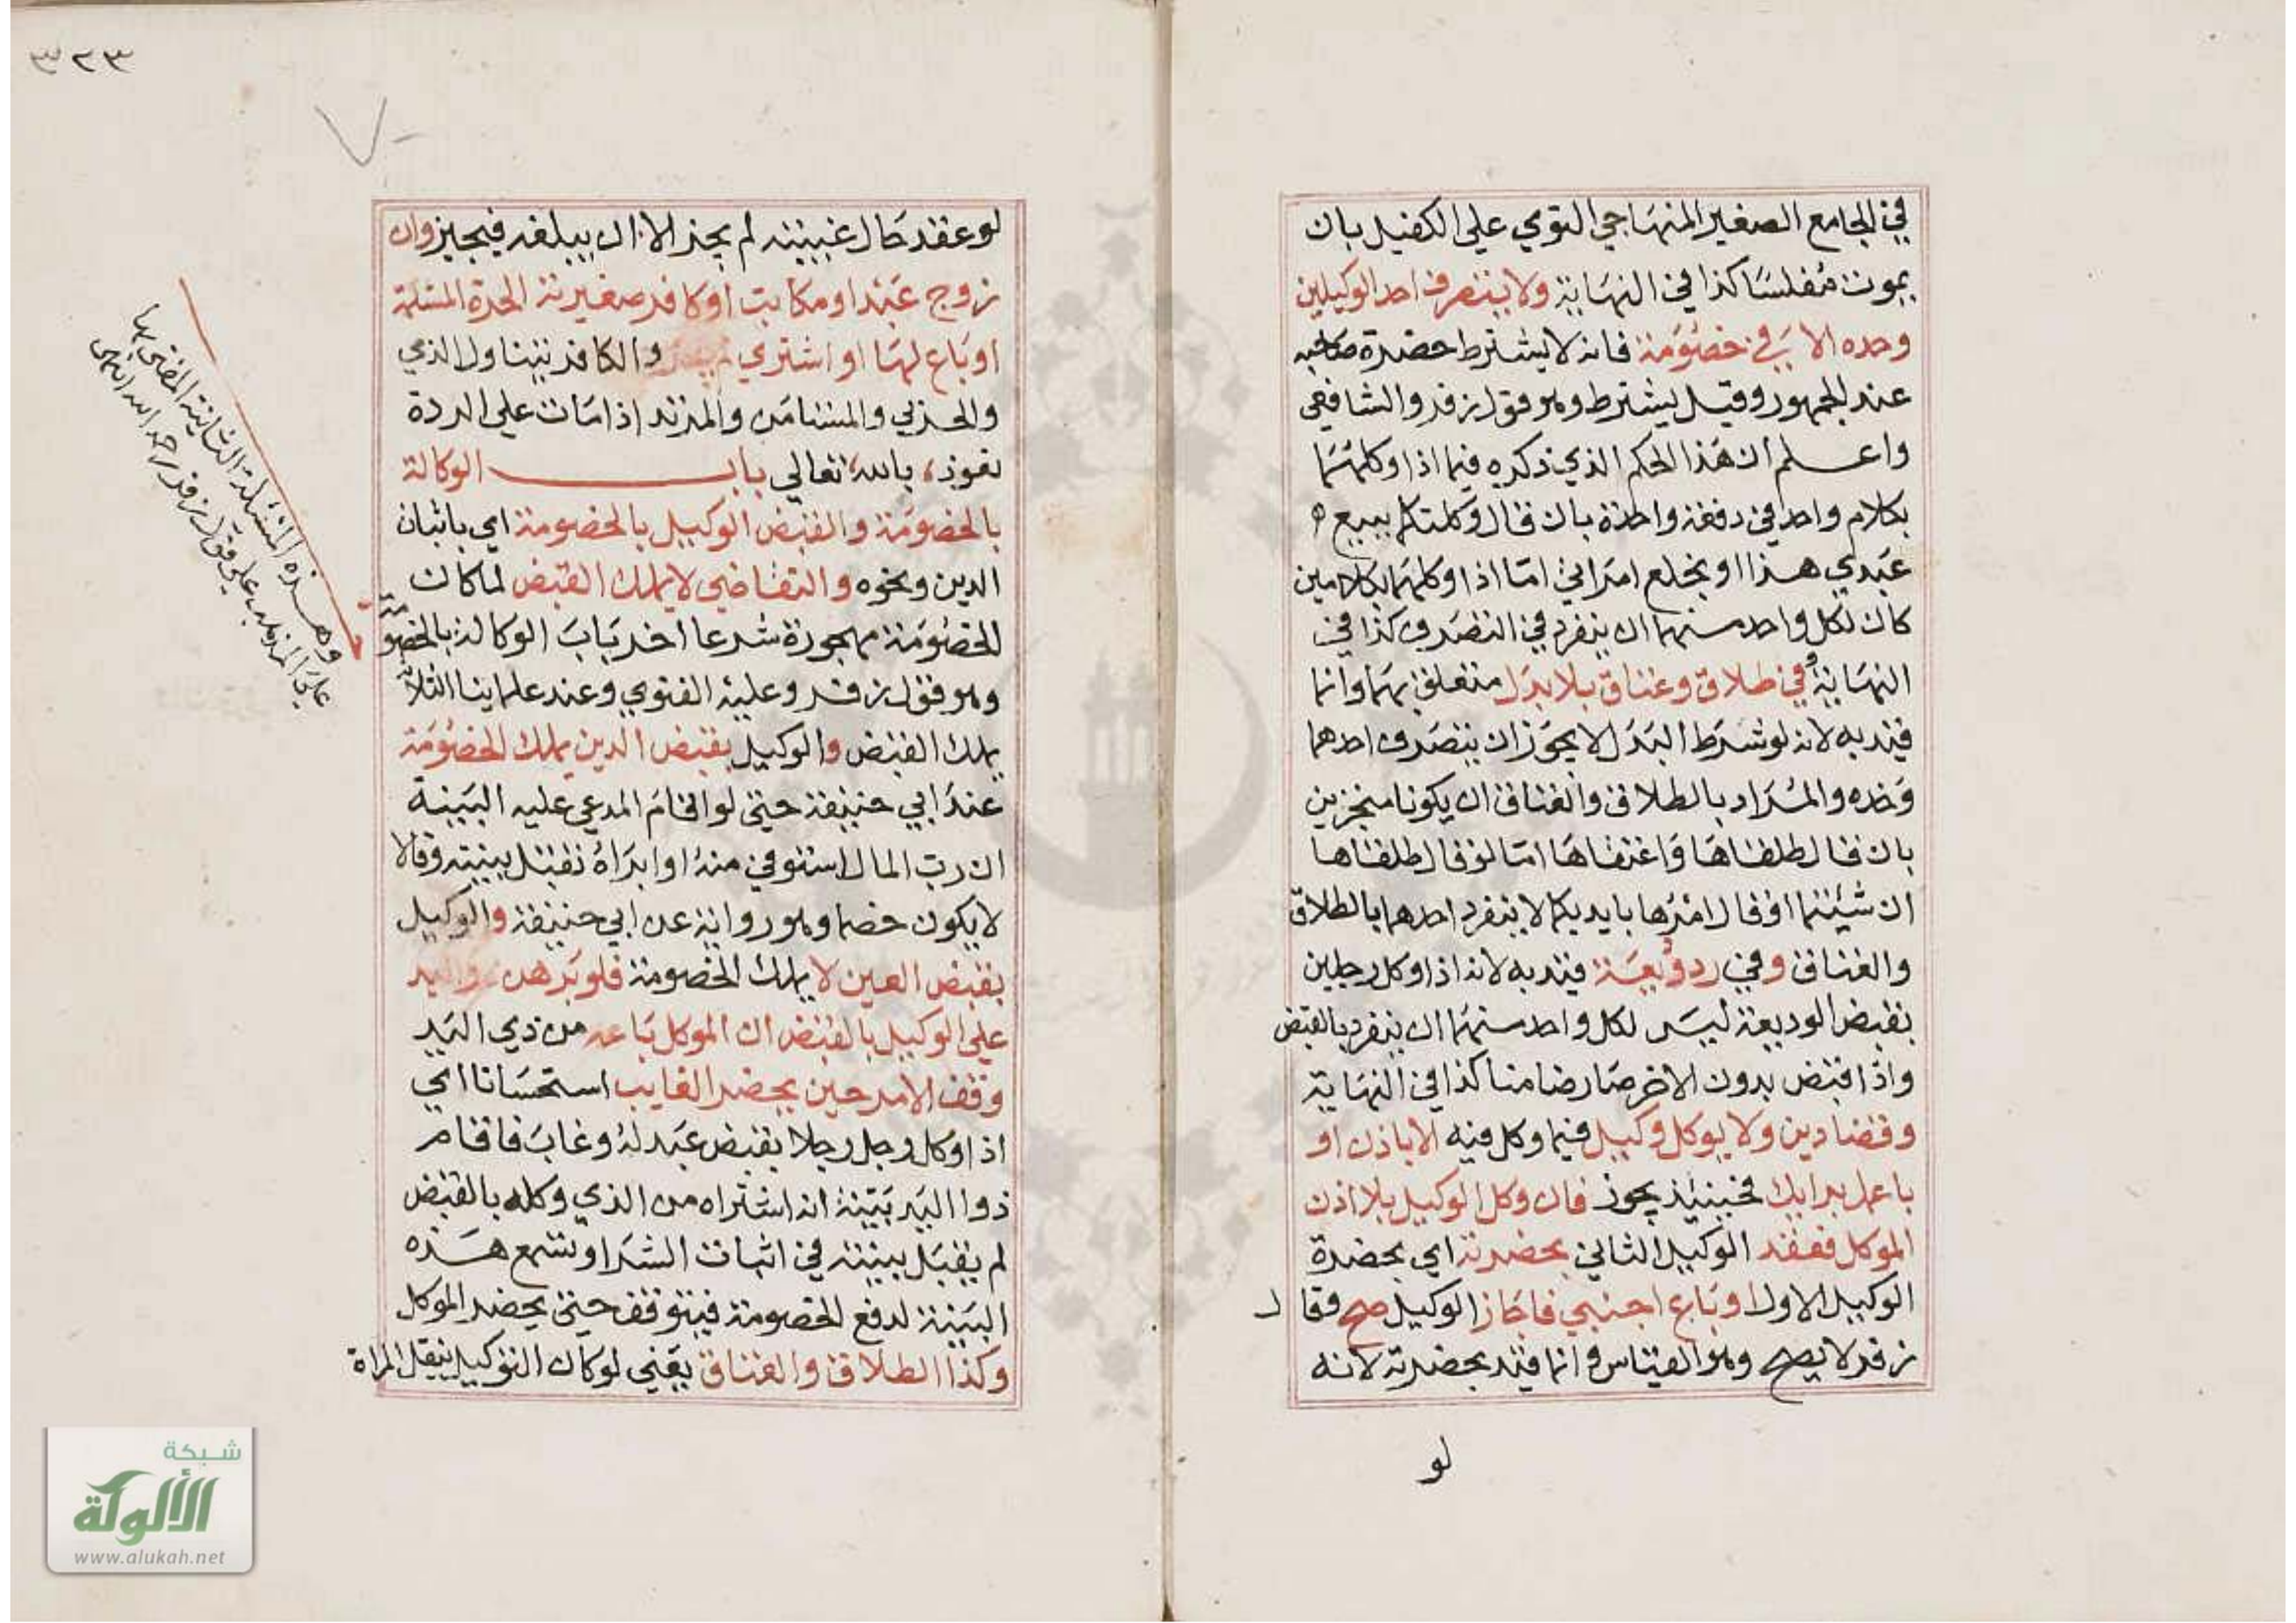 في الجامع الصغير المنهاجي التوي علي الكفيل بان
يموت مفلسا كذا في النهاية ولا يتصرف احد الوكيلين
وحده الا في خصومة فانه لا يشترط حضرة صاحبه
عند الجمهور وقيل يشترط وهو قول زفر والشافعي
واعلم ان هذا الحكم الذي ذكره فيما اذا وكلهما
بكلام واحد في دفعة واحدة بان قال وكلتكما ببيع
عبدي هذا او بخلع امراتي اما اذا وكلهما بكلامين
كان لكل واحد منهما ان ينفرد في التصرف كذا في
النهاية وفي طلاق وعتاق بلا بدل متعلق بهما وانما
قيد به لانه لو شرط البدل لا يجوز ان يتصرف احدهما
وحده والمراد بالطلاق والعتاق ان يكونا منجزين
بان قال طلقاها واعتقاها اما لو قال طلقاها
ان شيئتما او قال امرها بايديكما لا ينفرد احدهما بالطلاق
والعتاق وفي رد وديعة قيد به لانه اذا وكل رجلين
بقبض الوديعة ليس لكل واحد منهما ان ينفرد بالقبض
واذا قبض بدون الاخر صار ضامنا كذا في النهاية
وقضا دين ولا يوكل وكيل فيما وكل فيه الا باذن او
باعمل برايك فحينئذ يجوز فان وكل الوكيل بلا اذن
الموكل فعقد الوكيل الثاني بحضرته اي بحضرة
الوكيل الاول او باع اجنبي فاجاز الوكيل صح وقال
زفر لا يصح وهو القياس وانما قيد بحضرته لانه
لو
٣٢٣
لو عقد حال غيبته لم يجز الا ان يبلغه فيجيز وان
زوج عبد او مكاتب او كافر صغيرته الحرة المسلمة
او باع لها او اشتري والكافر يتناول الذي
والحربي والمستامن والمرتد اذا مات علي الردة
نعوذ بالله تعالي باب الوكالة
بالخصومة والقبض الوكيل بالخصومة اي باثبات
الدين ونحوه والتقاضي لا يملك القبض لما كان
الخصومة مهجورة شرعا اخر باب الوكالة بالخصومة
وهو قول زفر وعليه الفتوي وعند علماينا الثلاثة
يملك القبض والوكيل بقبض الدين يملك الخصومة
عند ابي حنيفة حتي لو اقام المدعي عليه البينة
ان رب المال استوفي منه او ابراه تقبل بينته وقالا
لا يكون خصما وهو رواية عن ابي حنيفة والوكيل
بقبض العين لا يملك الخصومة فلو برهن ذو اليد
علي الوكيل بالقبض ان الموكل باعه من ذي اليد
وقف الامر حين يحضر الغايب استحسانا اي
اذا وكل رجل رجلا بقبض عبد له وغاب فاقام
ذوا اليد بينة انه اشتراه من الذي وكله بالقبض
لم يقبل بينته في اثبات الشرا وتسمع هذه
البينة لدفع الخصومة فيتوقف حتي يحضر الموكل
وكذا الطلاق والعتاق يعني لو كان التوكيل بنقل المراة
وهذه المسئلة الثانية المفتي بها
علي المذهب علي قول زفر رحمه الله انتهى
شبكة
الألوكة
www.alukah.net